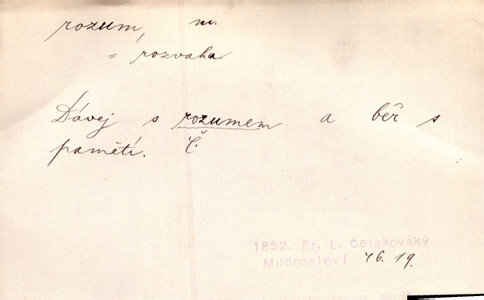 rozum, m.
= rozvaha
Dávej s rozumem a běř s
pamětí. Č.
1852. Fr. L. Čelakovský
Mudrosloví 46.19.